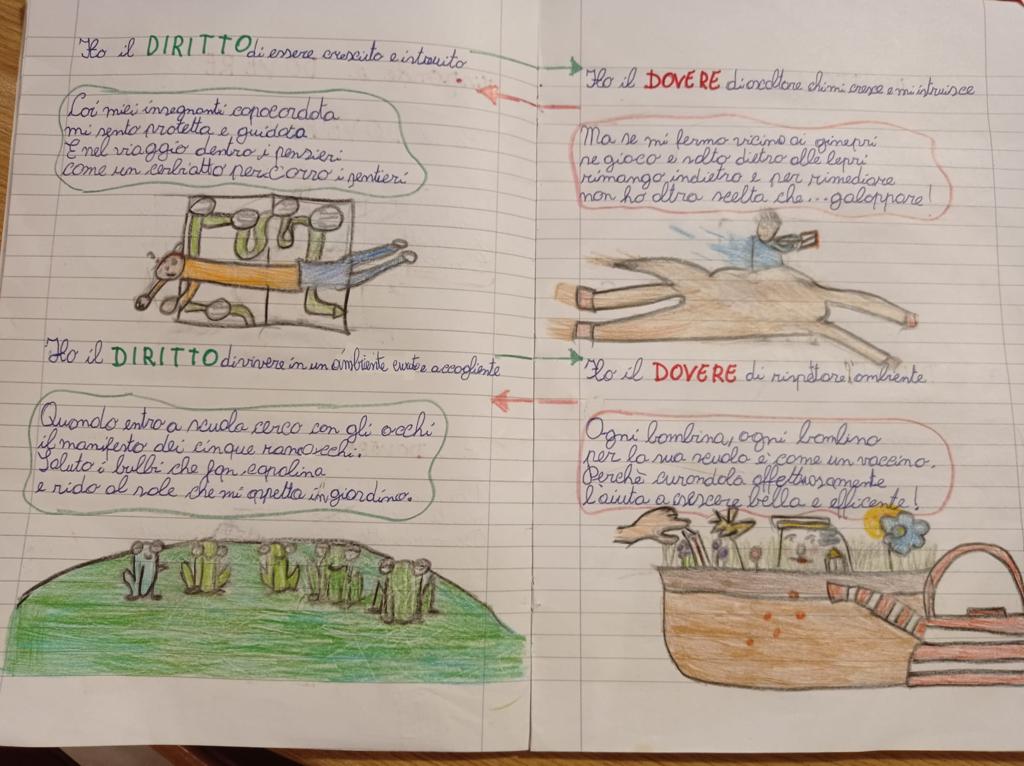 Ho il DIRITTO di essere cresciuto e istruito
Coi miei insegnanti capocordata
mi sento protetta e guidata.
E nel viaggio dentro i pensieri
come un cerbiatto percorro i sentieri
Ho il DOVERE di ascoltare chi mi cresce e mi istruisce
Ma se mi fermo vicino ai ginepri
se gioco e salto dietro alle lepri
rimango indietro e per rimediare
non ho altra scelta che... galoppare!
Ho il DIRITTO di vivere in un ambiente curato e accogliente
Quando entro a scuola cerco con gli occhi
il manifesto dei cinque ranocchi.
Saluto i bulbi che fan capolina
e rido al sole che mi aspetta in giardino.
Ho il DOVERE di rispettare l'ambiente
Ogni bambina, ogni bambino
per la sua scuola è come un vaccino.
Perchè curandola affettuosamente
l'aiuta a crescere bella e efficente!